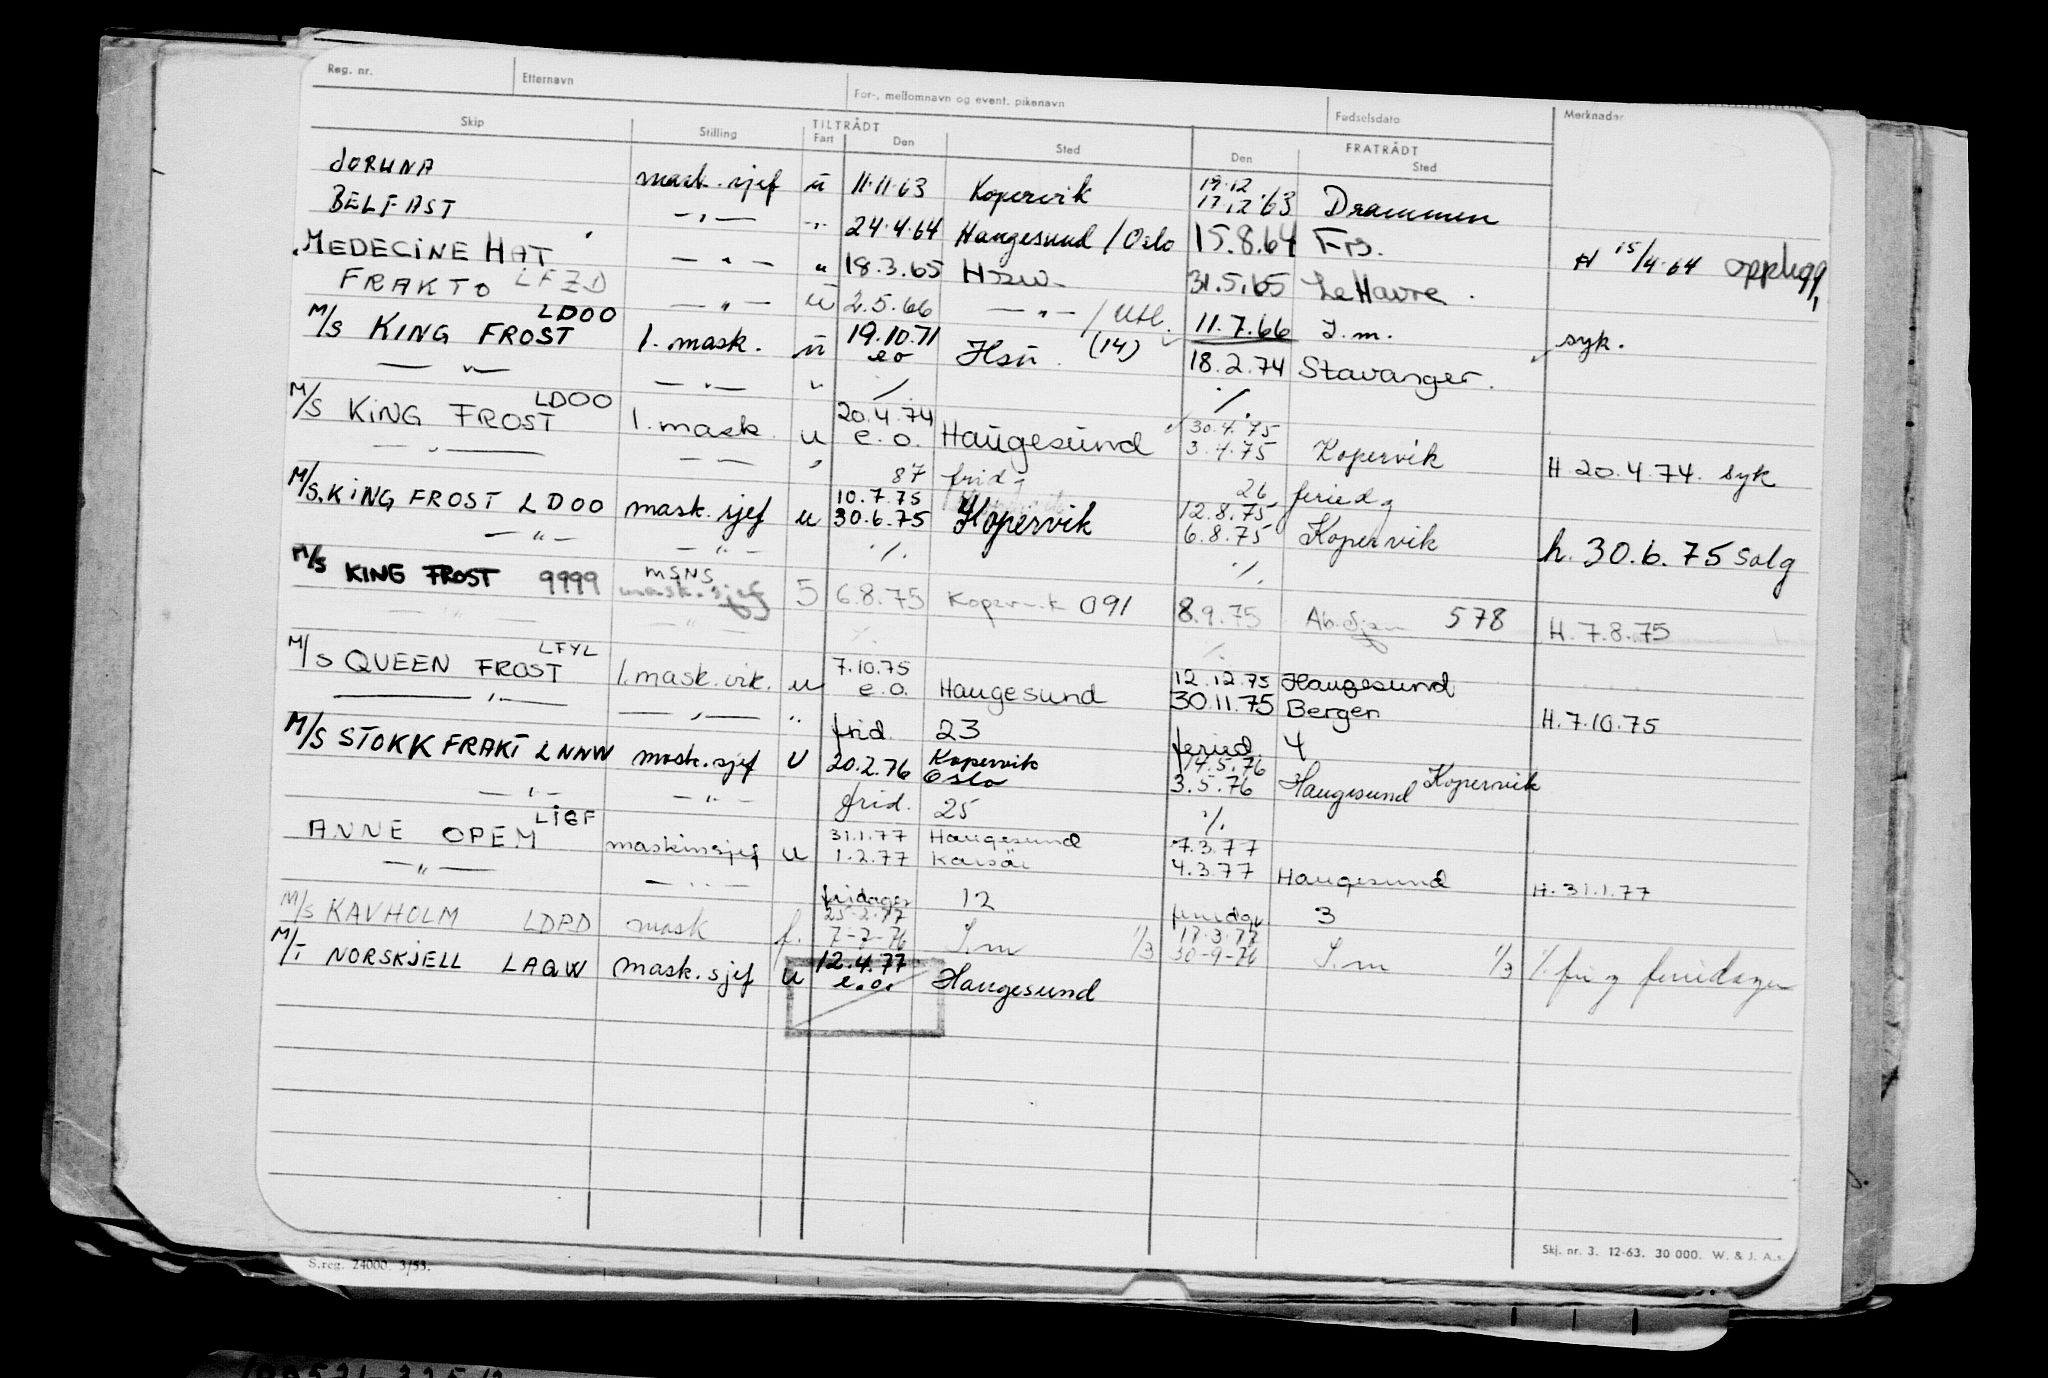 Reg. nr. Etternavn For-, mellomnavn og event. pikenavn Fødselsdato Merknader
Skip Stilling TILTRÅDT Fart Den Sted FRATRÅDT Den Sted
JORUNA mask. sjef u 11.11.63 Kopervik 19.12 17.12.63 Drammen
BELFAST —„— „ 24.4.64 Haugesund / Oslo 15.8.64 Frs. H 15/4.64 opplegg
MEDECINE HAT —„— „ 18.3.65 31.5.65 Le Havre.
FRAKTO LFZD —„— u 2.5.66 —„— / Utl. 11.7.66 I.m. syk.
M/S KING FROST LDOO 1. mask. u 19.10.71 e o Hsu. (14) 18.2.74 Stavanger.
—„— —„— „ ./. ./.
M/S KING FROST LDOO 1. mask. u 20.4.74 e.o. Haugesund 30.4.75 3.4.75 Kopervik H 20.4.74. syk
—„— —„— „ 87 frid 26 feried
M/S. KING FROST LDOO mask. sjef u 10.7.75 30.6.75 Kopervik 12.8.75 6.8.75 Kopervik h. 30.6.75 salg
—„— —„— ./. ./.
M/S KING FROST 9999 MSNS mask. sjef 5 6.8.75 Kopervik 091 8.9.75 Abidjan 578 H. 7.8.75
—„— —„— ./. ./.
M/S QUEEN FROST LFYL 1. mask. vik. u 7.10.75 e.o. Haugesund 12.12.75 Haugesund 30.11.75 Bergen H. 7.10.75
—„— —„— „ frid 23 feried 4
M/S STOKKFRAKT LNNW mask. sjef U 20.2.76 Kopervik Oslo 14.5.76 3.5.76 Haugesund Kopervik
—„— —„— frid. 25 ./.
ANNE OPEM LIGF maskinsjef u 31.1.77 Haugesund 1.2.77 7.3.77 4.3.77 Haugesund H. 31.1.77
—„— —„— fridager 12 feriedgr 3
M/S KAVHOLM LDPD mask f. 25-2-77 7-7-76 I.m 1/3 17.3.77 30-9-76 I.m 1/3 ./. fri og feriedager
M/T NORSKJELL LAQW mask. sjef u 12.4.77 e.o. Haugesund
Skj. nr. 3. 12-63. 30 000. W. & J. A.s.
S.reg. 24000. 3/53.